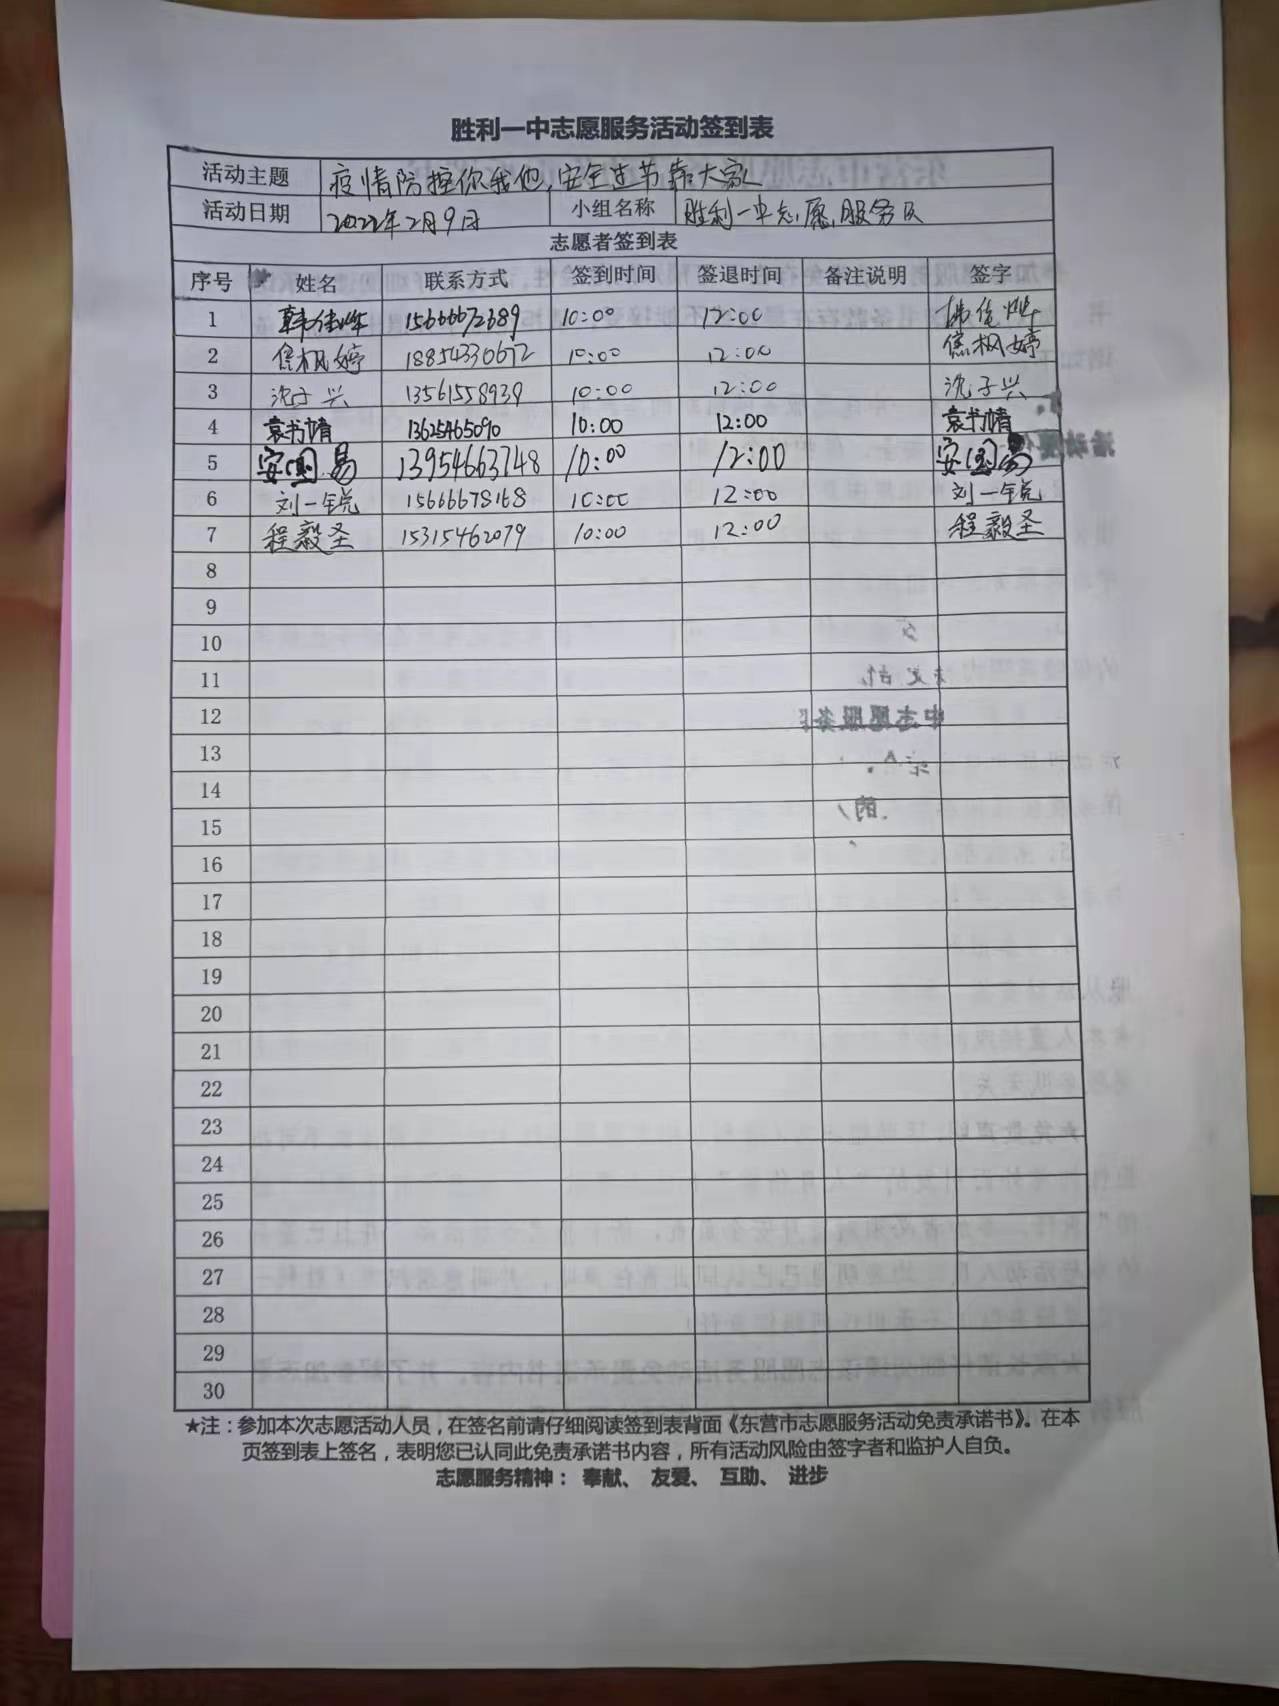 胜利一中志愿服务活动签到表
活动主题 疫情防控你我他,安全过节靠大家
活动日期 2022年2月9日 小组名称 胜利一中志愿服务队
志愿者签到表
序号 姓名 联系方式 签到时间 签退时间 备注说明 签字
1 韩佳烨 15666672689 10:00 12:00 韩佳烨
2 焦枫婷 18854330672 10:00 12:00 焦枫婷
3 沈子兴 13561558939 10:00 12:00 沈子兴
4 袁书婧 13625465090 10:00 12:00 袁书婧
5 安国易 13954663748 10:00 12:00 安国易
6 刘一锐 15666678168 10:00 12:00 刘一锐
7 程毅圣 15315462079 10:00 12:00 程毅圣
8
9
10
11
12
13
14
15
16
17
18
19
20
21
22
23
24
25
26
27
28
29
30
★注:参加本次志愿活动人员,在签名前请仔细阅读签到表背面《东营市志愿服务活动免责承诺书》。在本
页签到表上签名,表明您已认同此免责承诺书内容,所有活动风险由签字者和监护人自负。
志愿服务精神: 奉献、 友爱、 互助、 进步